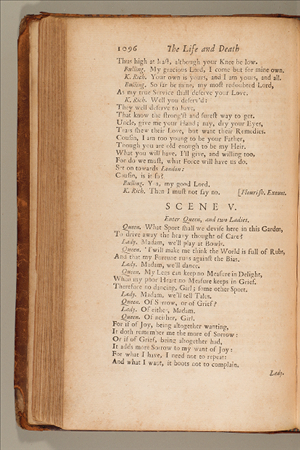 1096 The Life and Death
Thus high at least, although your Knee be low.
Bulling. My gracious Lord, I come but for mine own.
K. Rich. Your own is yours, and I am yours, and all.
Bulling. So far be mine, my most redoubted Lord,
As my true Service shall deserve your Love.
K. Rich. Well you deserv'd:
They well deserve to have,
That know the strong'st and surest way to get.
Uncle, give me your Hand; nay, dry your Eyes,
Tears shew their Love, but want their Remedies.
Cousin, I am too young to be your Father,
Though you are old enough to be my Heir.
What you will have, I'll give, and willing too.
For do we must, what Force will have us do.
Set on towards London:
Cousin, is it so?
Bulling. Yea, my good Lord.
K. Rich. Then I must not say no. [Flourish. Exeunt.
SCENE V.
Enter Queen, and two Ladies.
Queen. What Sport shall we devise here in this Garden,
To drive away the heavy thought of Care?
Lady. Madam, we'll play at Bowls.
Queen. 'Twill make me think the World is full of Rubs,
And that my Fortune runs against the Bias.
Lady. Madam, we'll dance.
Queen. My Legs can keep no Measure in Delight,
When my poor Heart no Measure keeps in Grief.
Therefore no dancing, Girl; some other Sport.
Lady. Madam, we'll tell Tales.
Queen. Of Sorrow, or of Grief?
Lady. Of either, Madam.
Queen. Of neither, Girl.
For if of Joy, being altogether wanting,
It doth remember me the more of Sorrow:
Or if of Grief, being altogether had,
It adds more Sorrow to my want of Joy:
For what I have, I need not to repeat;
And what I want, it boots not to complain.
Lady.